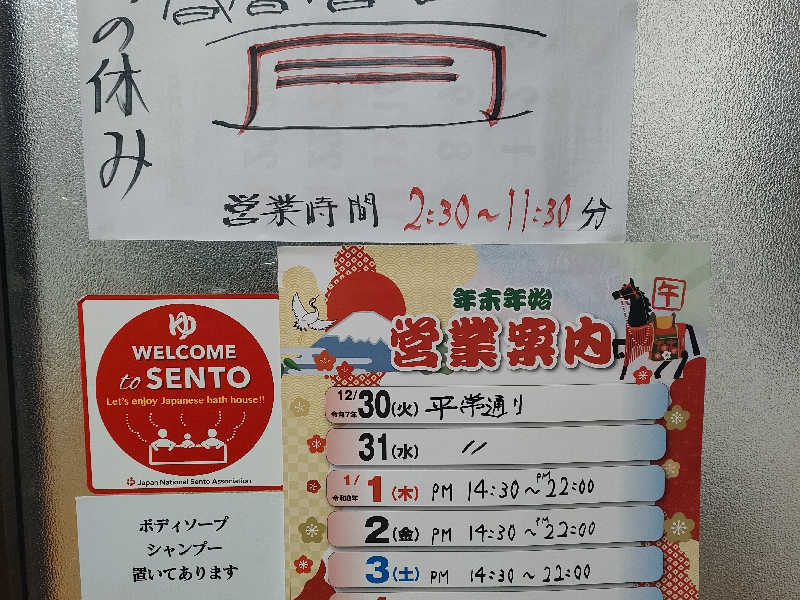 の休み
営業時間 2:30～11:30分
ゆ
WELCOME
to SENTO
Let's enjoy Japanese bath house!!
ゆ Japan National Sento Association
ボディソープ
シャンプー
置いてあります
午
年末年始
営業案内
12/30(火) 平常通り
令和7年
31(水) 〃
1/1(木) PM 14:30～PM22:00
令和8年
2(金) PM 14:30～PM22:00
3(土) PM 14:30～22:00